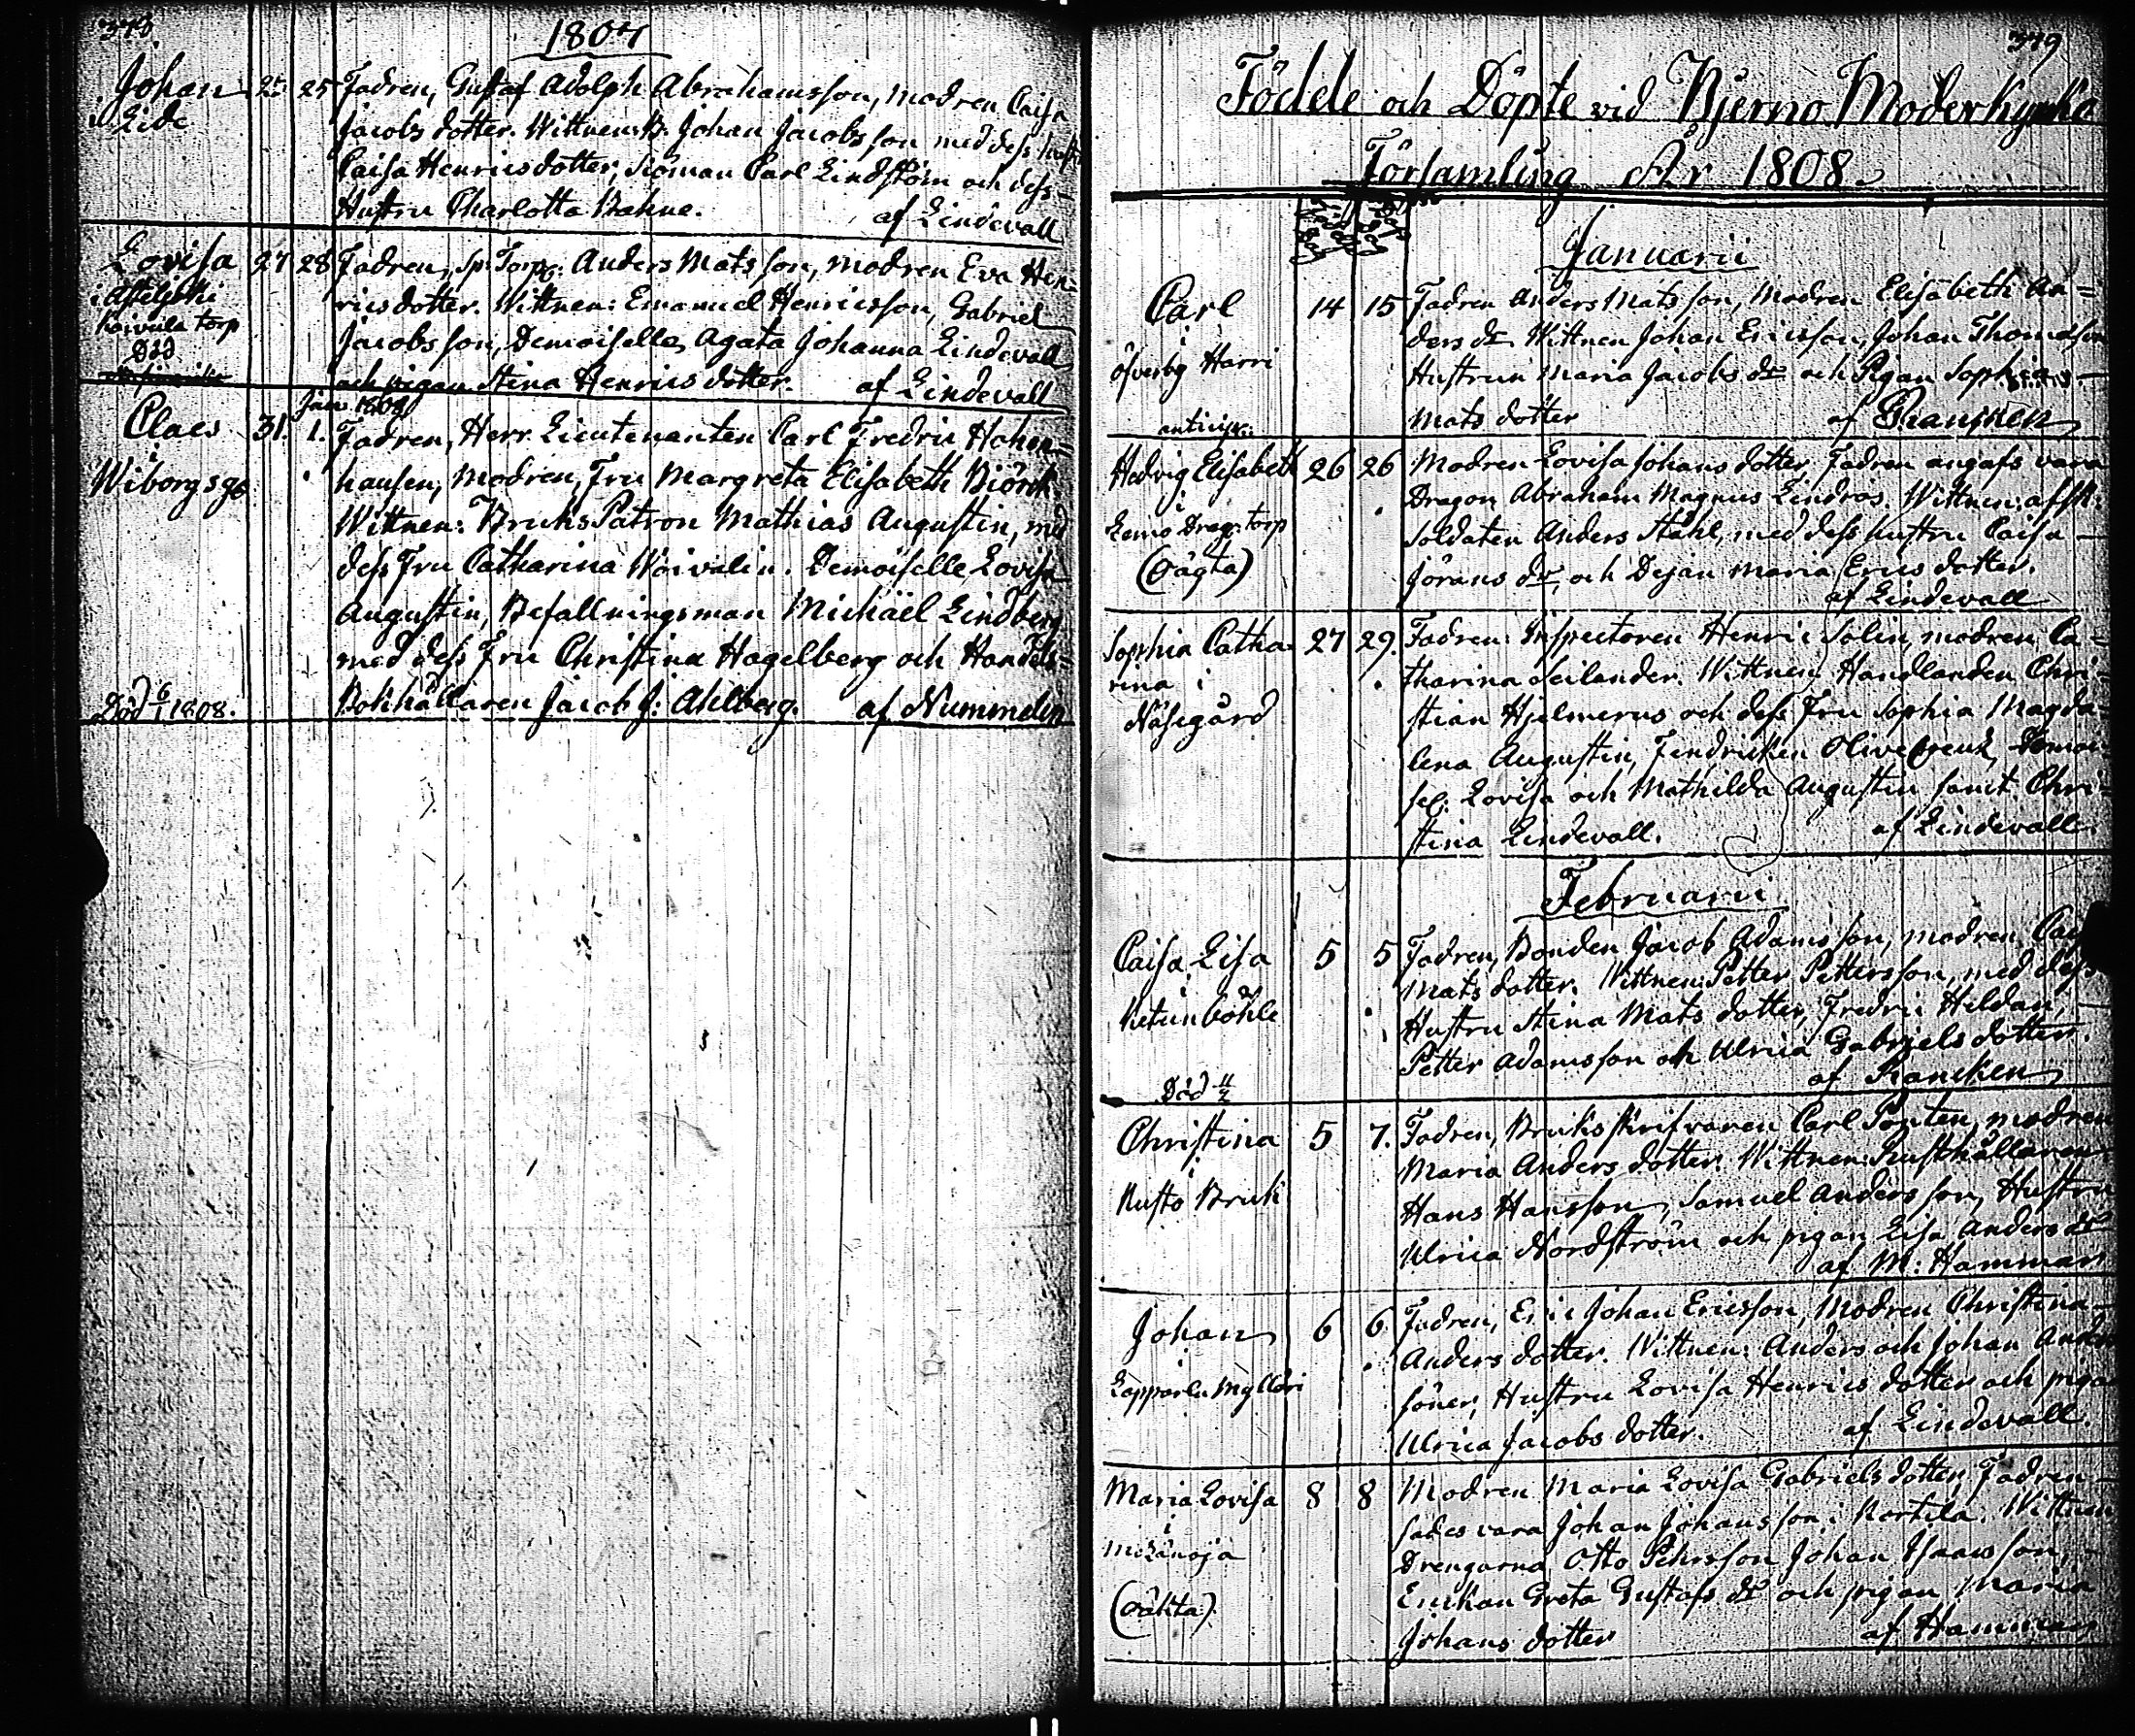 378
1807
Johan 25 25 Fadren, Gustaf Adolph Abrahamsson, modren Caisa
i Lide Jacobs dotter. Wittnen: B. Johan Jacobsson med dess hustru
Caisa Henricsdotter, Siöman Carl Lindström och dess
Hustru Charlotta Bahne. af Lindevall
Lovisa 27 28 Fadren, Sp: Torp: Anders Matsson, modren Eva Hen-
i Asteljoki ricsdotter. Wittnen: Emanuel Henricsson, Gabriel
Koivula torp Jacobsson, Demoiselle Agata Johanna Lindevall
Död och pigan Stina Henricsdotter. af Lindevall
Jan: 1808
Claes 31. 1. Fadren, Herr Lieutenanten Carl Fredric Hohen-
i
Wiborgsgd hausen, modren, Fru Margreta Elisabeth Biörck.
Wittnen: Bruks Patron Mathias Augustin, med
dess Fru Catharina Woivalin. Demoiselle Lovisa
Augustin, Befallningsman Michäel Lindberg
med dess Fru Christina Hagelberg och Handels-
Död 6/1 1808. Bokhållaren Jacob J: Ahlberg. af Nummelin
379
Födde och Döpte vid Bjerno Moderkyrko
Församling År 1808.
Januarii
Carl 14 15 Fadren Anders Matsson, Modren Elisabeth An-
i ders dr Wittnen Johan Ericsson, Johan Thomasson
öfverby Harri Hustrun Maria Jacobs dr och Pigan Sophia
anticip: Mats dotter af Prancken
Hedvig Elisabeth 26 26 Modren Lovisa Johans dotter, Fadren angafs vara
i Dragon Abraham Magnus Lindros. Wittnen: afsk:
Lemo Drag: torp Soldaten Anders Ståhl, med dess hustru Caisa
(oägta) Jörans dr, och Dejan Maria Ericsdotter.
af Lindevall
Sophia Catha- 27 29. Fadren: Inspectoren Henric Solin, modren Ca-
rina i tharina Seilander. Wittnen: Handlanden Chri-
Näsegård stian Hjelmerus och dess Fru Sophia Magda-
lena Augustin, Fendricken Olivecreuz, Demoi-
sel: Lovisa och Mathilda Augustin samt Chri-
stina Lindevall. af Lindevall.
Februarii
Caisa Lisa 5 5 Fadren, Bonden Jacob Adamsson, modren Caisa
i Mats dotter. Wittnen: Petter Pettersson, med dess
Ketunböhle Hustru Stina Mats dotter, Fredric Hildan,
Petter Adamsson och Ulrica Gabriels dotter.
Död 11/2 af Prancken
Christina 5 7. Fadren, Bruks skrifvaren Carl Ponten, modren
i Maria Anders dotter. Wittnen: Rusthållaren
Kusto Bruk Hans Hansson, Samuel Andersson, Hustru
Ulrica Nordström och pigan Lisa Anders dr
af M: Hammar
Johan 6 6. Fadren, Eric Johan Ericsson, Modren Christina
i Anders dotter. Wittnen: Anders och Johan Anders
Lapparla Mylläri söner, Hustru Lovisa Henrics dotter och pigan
Ulrica Jacobs dotter. af Lindevall.
Maria Lovisa 8 8 Modren Maria Lovisa Gabriels dotter, Fadren
i sades vara Johan Johansson i Kortila. Wittnen
Drengarna Otto Pehrsson Johan Isaacsson,
(oäkta). Enckan Greta Gustafs dr och pigan Maria
Johans dotter af Hammar